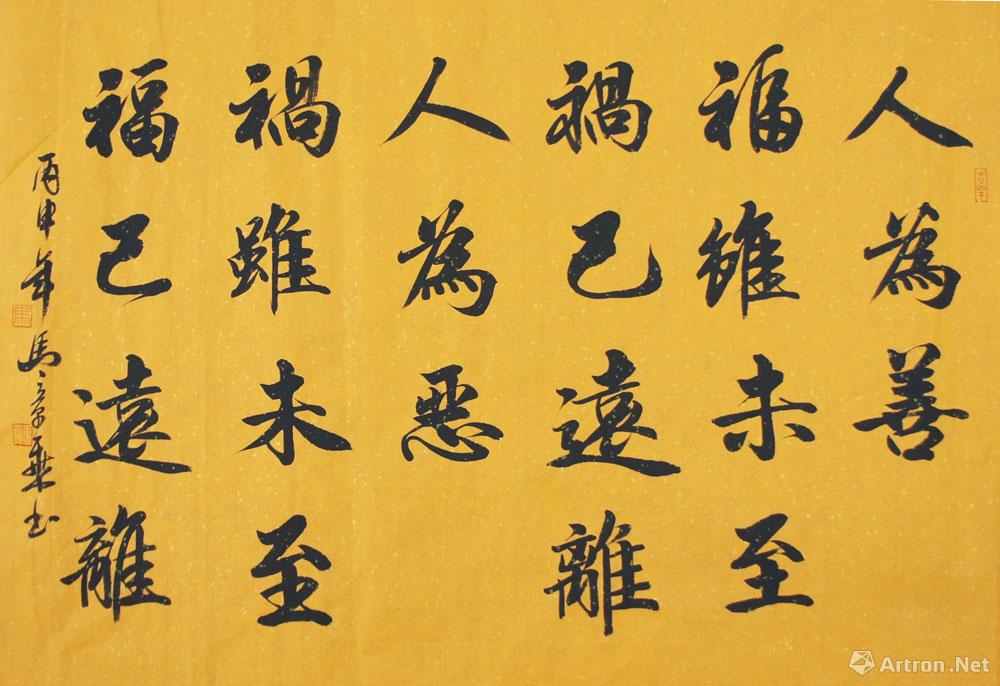 人為善
福雖未至
禍已遠離
人為惡
禍雖未至
福已遠離
丙申年馬章乘书
Artron.Net